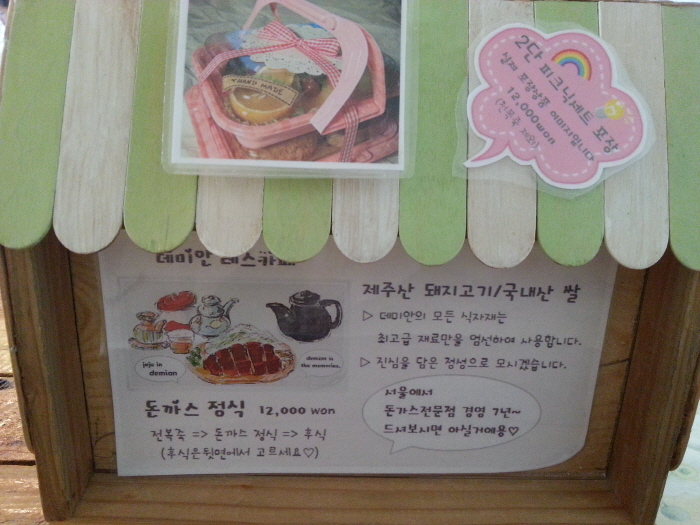 HAND MADE
2단 피크닉세트 포장
실제 포장상품 이미지입니다
12,000won
(전복죽 제외)
데미안 레스카페
제주산 돼지고기/국내산 쌀
▷ 데미안의 모든 식자재는
최고급 재료만을 엄선하여 사용합니다.
▷ 진심을 담은 정성으로 모시겠습니다.
jeju in
demian
demian is
the memories.
돈까스 정식 12,000 won
전복죽 => 돈까스 정식 => 후식
(후식은 뒷면에서 고르세요♡)
서울에서
돈가스전문점 경영 7년~
드셔보시면 아실거예용♡